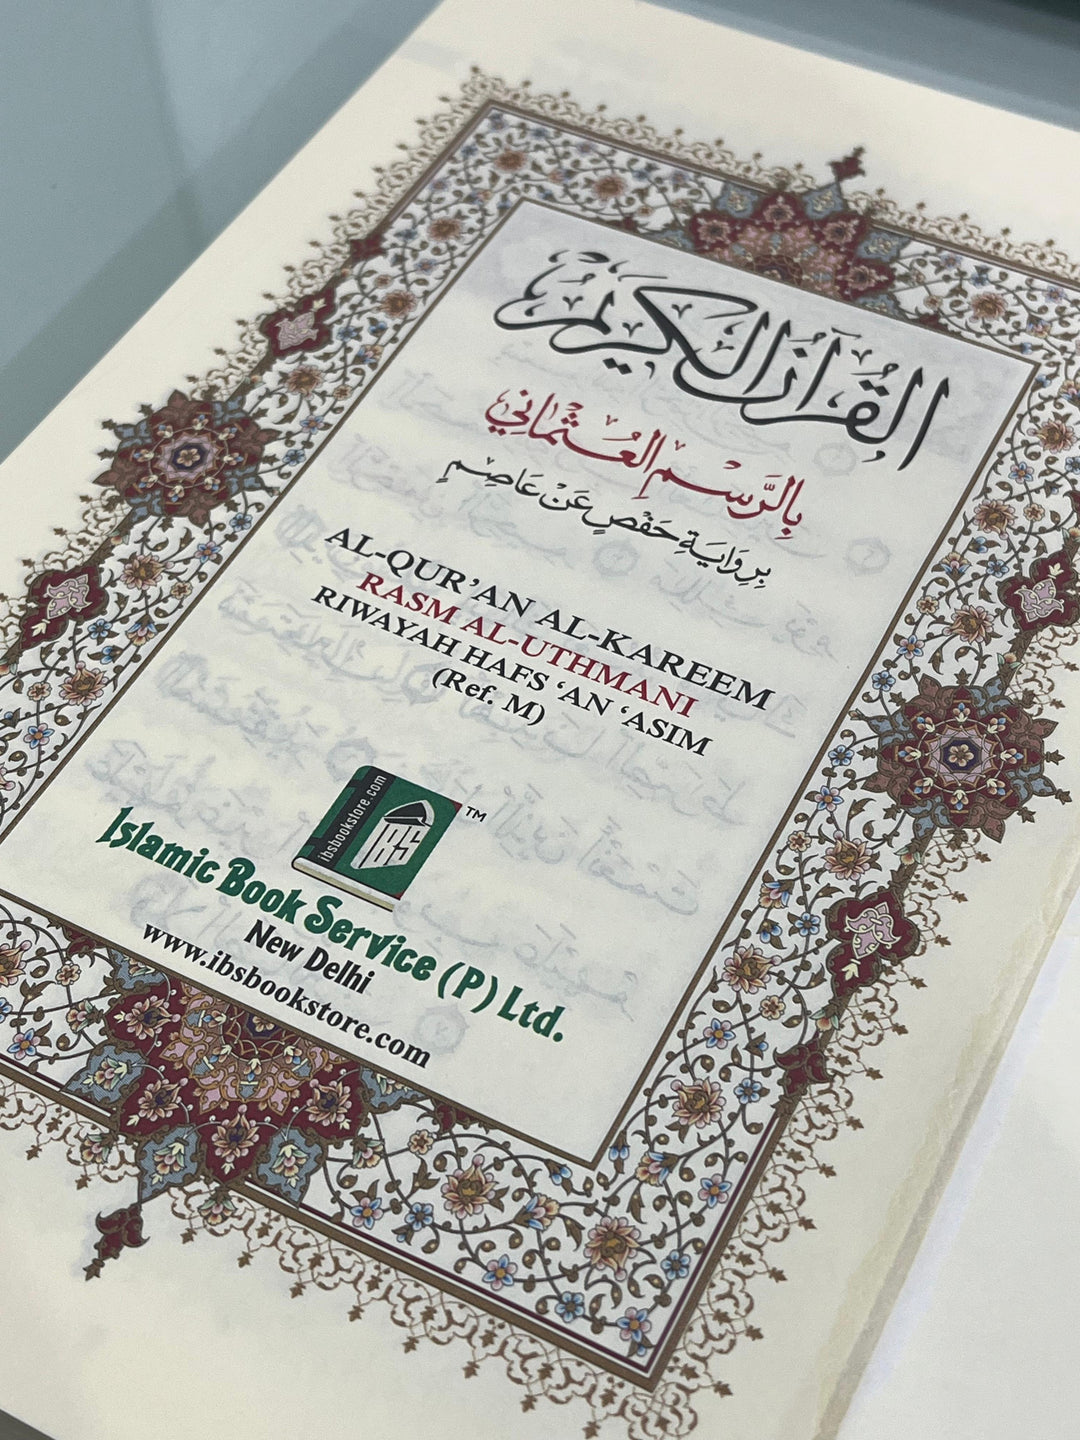 القُرآنُ الكَرِيمُ
بِالرَّسْمِ العُثْمَانِي
بِرِوَايَةِ حَفْصٍ عَنْ عَاصِمٍ
AL-QUR’AN AL-KAREEM
RASM AL-UTHMANI
RIWAYAH HAFS ‘AN ‘ASIM
(Ref. M)
ibsbookstore.com
IBS
TM
Islamic Book Service (P) Ltd.
New Delhi
www.ibsbookstore.com